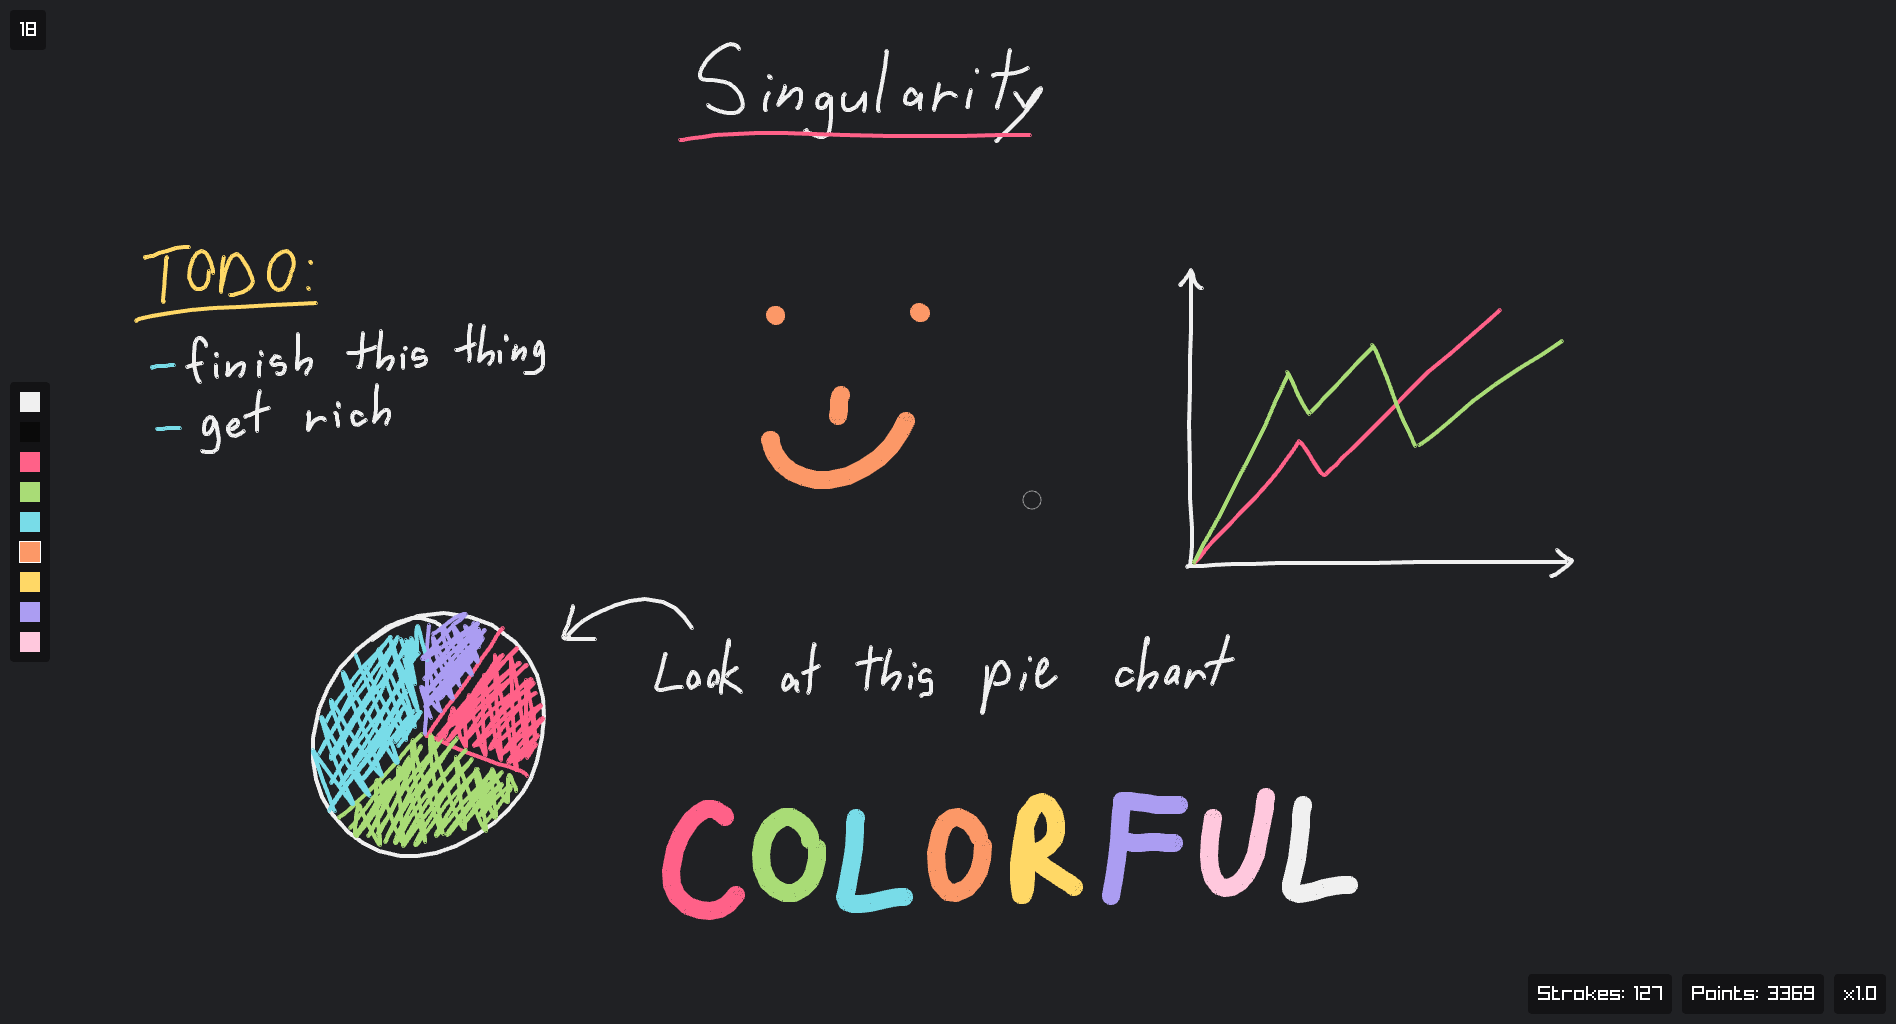 18
Singularity
TODO:
- finish this thing
- get rich
Look at this pie chart
COLORFUL
Strokes: 127 Points: 3369 x1.0